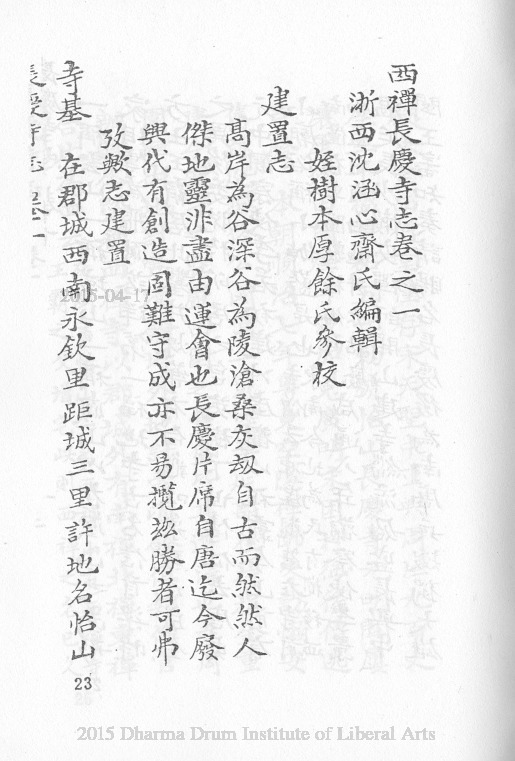 西禪長慶寺志卷之一
浙西沈涵心齋氏編輯
姪樹本厚餘氏參校
建置志
高岸為谷深谷為陵滄桑灰刼自古而然然人
傑地靈非盡由運會也長慶片席自唐迄今廢
興代有創造固難守成亦不易攬茲勝者可弗
攷歟志建置
寺基 在郡城西南永欽里距城三里許地名怡山
長慶寺志 卷一
23
2015-04-17
2015 Dharma Drum Institute of Liberal Arts